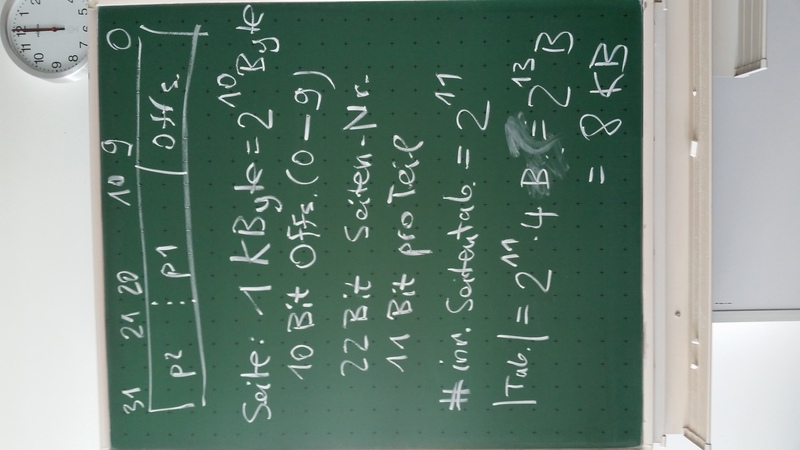 31 21 20 10 9 0
p2 p1 Offs.
Seite: 1 KByte = 2^10 Byte
10 Bit Offs. (0-9)
22 Bit Seiten-Nr.
11 Bit pro Teil
# inn. Seitentab. = 2^11
|Tab.| = 2^11 · 4 B = 2^13 B
= 8 KB